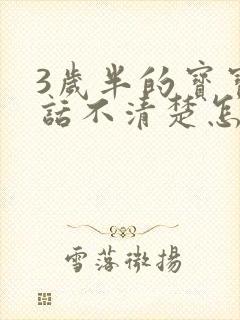 3歲半的寶寶
話不清楚怎
雪落微揚